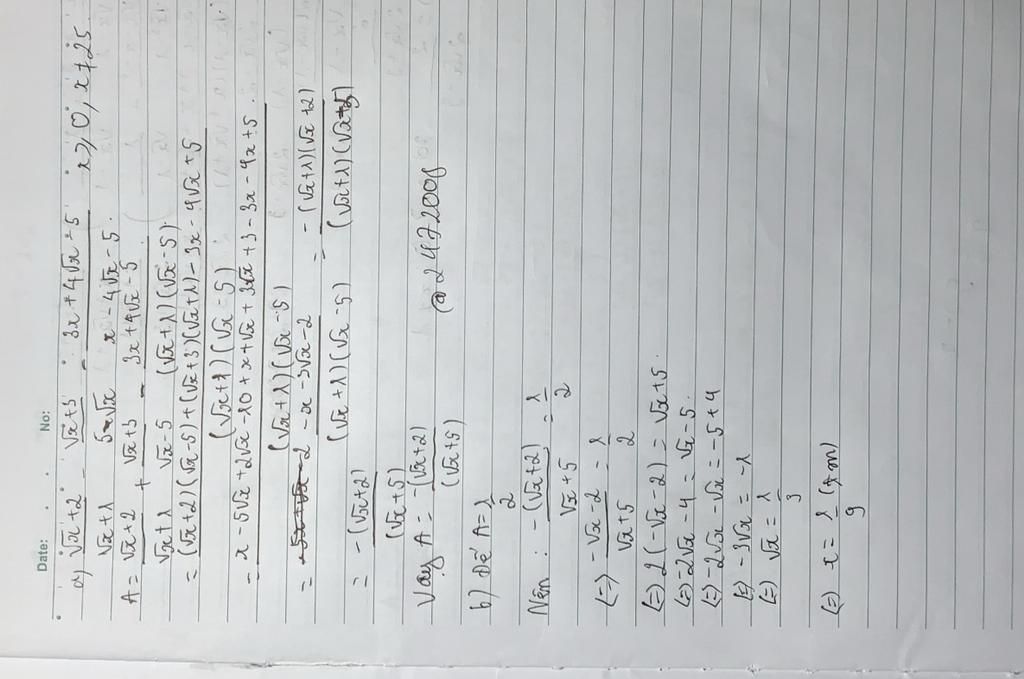 Date: No:
a) √x+2 / √x+1 - √x+3 / 5-√x - 3x+4√x-5 / x-4√x-5. x≥0, x≠25
A = √x+2 / √x+1 + √x+3 / √x-5 - 3x+4√x-5 / (√x+1)(√x-5).
= (√x+2)(√x-5)+(√x+3)(√x+1)-3x-4√x+5 / (√x+1)(√x-5)
= x-5√x+2√x-10+x+√x+3√x+3-3x-4x+5. / (√x+1)(√x-5)
= -x-3√x-2 / (√x+1)(√x-5) = -(√x+1)(√x+2) / (√x+1)(√x+5)
= -(√x+2) / (√x+5)
Vậy A = -(√x+2) / (√x+5)
@2472008
b) Để A = 1/2
Nên: -(√x+2) / √x+5 = 1/2
(=) -√x-2 / √x+5 = 1/2
(=) 2(-√x-2) = √x+5.
(=) -2√x-4 = √x-5.
(=) -2√x-√x = -5+4
(=) -3√x = -1
(=) √x = 1/3
(=) x = 1/9 (t/m)